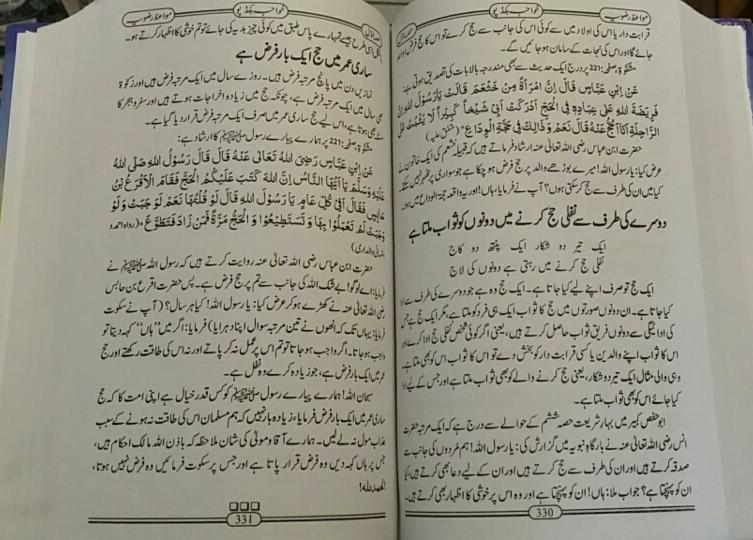 مواعظ رضویہ
خواجہ بکڈپو
قرابت دار یا اس کی اولاد میں سے کوئی اس کی جانب سے حج کرے تو اس کا حج فرض ادا ہو
جائے گا اور اس کی نجات کے سامان ہو جائیں گے۔
مشکوٰۃ، صفحہ:221 پر درج ایک حدیث سے بھی مندرجہ بالا بات کی تصدیق ہوتی ہے:
عَنِ ابْنِ عَبَّاسٍ قَالَ إِنَّ امْرَأَةً مِنْ خَثْعَمَ قَالَتْ يَارَسُوْلَ اللهِ إِنَّ
فَرِيْضَةَ اللهِ عَلَى عِبَادِهِ فِي الْحَجِّ أَدْرَكَتْ أَبِيْ شَيْخًا كَبِيْرًا لَا يَثْبُتُ عَلَى
الرَّاحِلَةِ أَفَأَحُجُّ عَنْهُ قَالَ نَعَمْ وَذَالِكَ فِيْ حَجَّةِ الْوِدَاعِ۔ (متفق علیہ)
حضرت ابن عباس رضی اللہ تعالیٰ عنہ ارشاد فرماتے ہیں کہ قبیلہ خثعم کی ایک خاتون نے
عرض کیا: یارسول اللہ! میرے بوڑھے والد پر حج فرض ہو چکا ہے جو سواری پر ٹھہر نہیں سکتے
کیا میں ان کی طرف سے حج کر سکتی ہوں؟ آپ نے فرمایا، ہاں! اور یہ واقعہ حجۃ الوداع میں ہوا۔
دوسرے کی طرف سے نفلی حج کرنے میں دونوں کو ثواب ملتا ہے
ایک تیر دو شکار ایک پنتھ دو کاج
نفلی حج کرنے میں رہتی ہے دونوں کی لاج
ایک حج تو صرف اپنے لیے کیا جاتا ہے۔ ایک حج وہ ہے جو دوسرے کی طرف سے ادا
کیا جاتا ہے۔ ان دونوں صورتوں میں حج کا ثواب ایک ہی فرد کو ملتا ہے، مگر ایک حج ہے جس
کی ادائیگی سے دونوں فریق ثواب حاصل کرتے ہیں، یعنی اگر کوئی شخص نفلی حج ادا کرے اور
اس کا ثواب اپنے والدین یا کسی قرابت دار کو بخش دے تو اس کا ثواب اس کو بھی ملتا ہے۔
وہی والی مثال ایک تیر دو شکار، یعنی حج کرنے والے کو بھی ثواب ملتا ہے اور جس کے لیے ادا
کیا جائے اس کو بھی ثواب ملتا ہے۔
ابو حفص کبیر میں بہار شریعت حصہ ششم کے حوالے سے درج ہے کہ ایک مرتبہ حضرت
انس رضی اللہ تعالیٰ عنہ نے بارگاہ نبویہ میں گزارش کی: یارسول اللہ! ہم مُردوں کی جانب سے
صدقہ کرتے ہیں اور ان کی طرف سے حج کرتے ہیں اور ان کے لیے دعا بھی کرتے ہیں، کیا
ان کو پہنچتا ہے؟ جواب ملا: ہاں! ان کو پہنچتا ہے اور وہ اس پر خوشی کا اظہار بھی کرتے ہیں۔
330
خواجہ بکڈپو
مواعظ رضویہ
بالکل اسی طرح جیسے تمہارے پاس طبق میں کوئی چیز ہدیہ کی جائے تو تم خوشی کا اظہار کرتے ہو۔
ساری عمر میں حج ایک بار فرض ہے
نمازیں دن میں پانچ مرتبہ فرض ہیں۔ روزے سال میں ایک مرتبہ فرض ہیں اور زکوٰۃ
بھی سال میں ایک مرتبہ فرض ہے، چونکہ حج میں زیادہ اخراجات ہوتے ہیں اور سفر و ہجر کا
بھی ہوتا ہے، اس لیے حج ساری عمر میں صرف ایک مرتبہ فرض قرار دیا گیا ہے۔
مشکوٰۃ، صفحہ:221 پر ہمارے پیارے رسول ﷺ کا ارشاد ہے:
عَنِ ابْنِ عَبَّاسٍ رَضِيَ اللهُ تَعَالٰى عَنْهُ قَالَ قَالَ رَسُوْلُ اللهِ صَلَّى اللهُ
عَلَيْهِ وَسَلَّمَ يَا أَيُّهَا النَّاسُ إِنَّ اللهَ كَتَبَ عَلَيْكُمُ الْحَجَّ فَقَامَ الْأَقْرَعُ بْنُ
حَابِسٍ فَقَالَ أَفِيْ كُلِّ عَامٍ يَا رَسُوْلَ اللهِ قَالَ لَوْ قُلْتُهَا نَعَمْ لَوَجَبَتْ وَلَوْ
وَجَبَتْ لَمْ تَعْمَلُوْا بِهَا وَلَمْ تَسْتَطِيْعُوْا وَ الْحَجُّ مَرَّةٌ فَمَنْ زَادَ فَتَطَوُّعٌ۔ (رواہ احمد و
نسائی والدارمی)
حضرت ابن عباس رضی اللہ تعالیٰ عنہ روایت کرتے ہیں کہ رسول اللہ ﷺ نے
فرمایا: اے لوگو! بے شک اللہ کی جانب سے تم پر حج فرض ہے۔ پس حضرت اقرع بن حابس
رضی اللہ تعالیٰ عنہ نے کھڑے ہو کر عرض کیا: یارسول اللہ! کیا ہر سال؟ (آپ نے سکوت
فرمایا: یہاں تک کہ انھوں نے تین مرتبہ سوال اپنا دہرایا) فرمایا: اگر میں ”ہاں“ کہہ دیتا تو
واجب ہو جاتا۔ اگر واجب ہو جاتا تو تم اس پر عمل نہ کر پاتے اور نہ اس کی طاقت رکھتے اور حج
عمر میں ایک بار فرض ہے، جو زیادہ کرے وہ نفل ہے۔
سبحان اللہ! ہمارے پیارے رسول ﷺ کو کس قدر خیال ہے اپنی امت کا کہ حج
ساری عمر میں ایک بار فرض فرمایا، زیادہ بار نہیں کہ ہم مسلمان اس کی طاقت نہ ہونے کے سبب
عذاب مول نہ لے لیں۔ ہمارے آقا و مولیٰ کی شان ملاحظہ کہ باذن اللہ مالک احکام ہیں،
جس پر ہاں کہہ دیں وہ فرض قرار پاتا ہے اور جس پر سکوت فرمائیں وہ فرض نہیں ہوتا،
الحمدللہ!
331